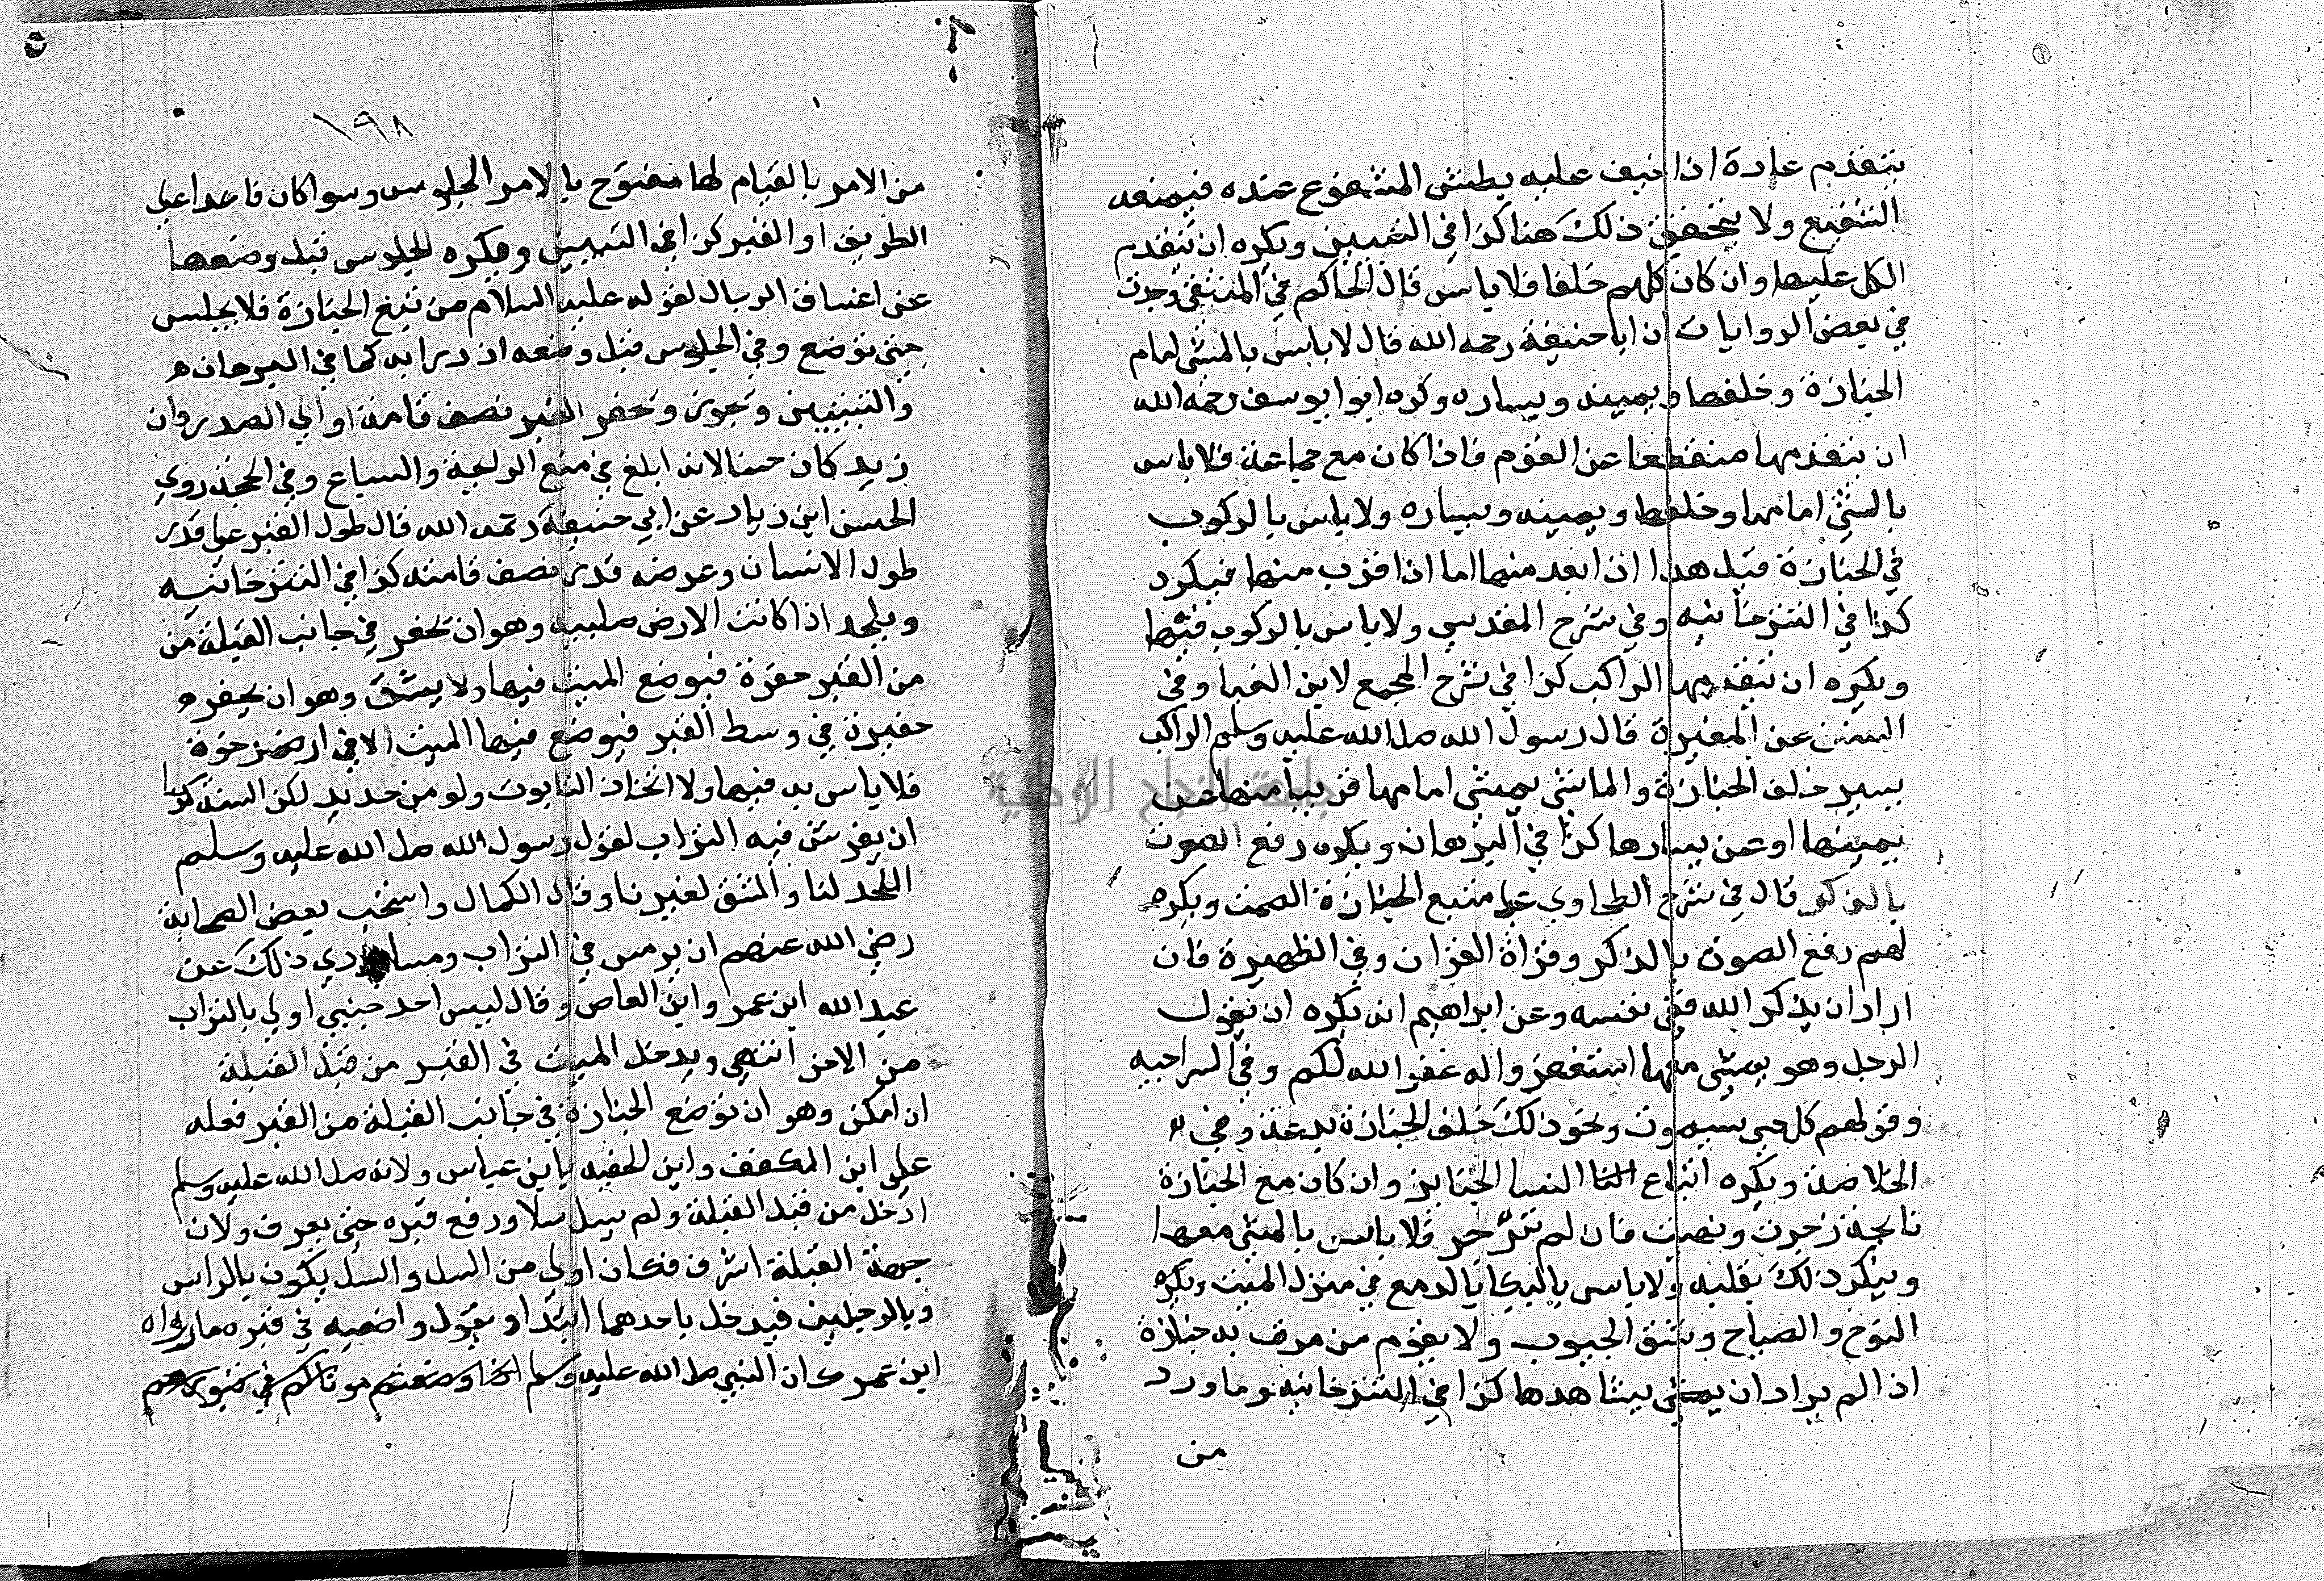 يتقدم عادة اذا خيف عليه بطش المشفوع عنده فيمنعه
الشفيع ولا يتحقق ذلك هنا كذا في التبيين ويكره ان يتقدم
الكل عليها وان كان كلهم خلفا فلا باس قال الحاكم في المنتقى وجدت
في بعض الروايات ان ابا حنيفة رحمه الله قال لا باس بالمشي امام
الجنازة وخلفها ويمينه ويساره وكره ابوا يوسف رحمه الله
ان يتقدمها منقطعا عن القوم فاذا كان مع جماعة فلا باس
بالمشي امامها وخلفها ويمينه ويساره ولا باس بالركوب
في الجنازة قبل هذا اذا بعد منها اما اذا قرب منها فيكره
كذا في التترخانيه وفي شرح المقدسي ولا باس بالركوب فيها
ويكره ان يتقدمها الراكب كذا في شرح المجمع لابن الضيا وفي
السنن عن المغيرة قال رسول الله صلى الله عليه وسلم الراكب
يسير خلف الجنازة والماشي يمشي امامها قريبا منها عن
يمينها او عن يسارها كذا في البرهان ويكره رفع الصوت
بالذكر قال في شرح الطحاوي على متبع الجنازة الصمت ويكره
لهم رفع الصوت بالذكر وقراة القران وفي الظهيرة فان
اراد ان يذكر الله ففي نفسه وعن ابراهيم انه يكره ان يقول
الرجل وهو يمشي معها استغفروا له غفر الله لكم وفي السراجيه
وقولهم كل حي سيموت ونحو ذلك خلف الجنازة بدعة وفي
الخلاصة ويكره اتباع النسا الجنايز وان كان مع الجنازة
نايحة زجرت ونصت فان لم تنزجر فلا باس بالمشي معها
وينكر ذلك بقلبه ولا باس بالبكا بالدمع في منزل الميت ويكره
النوح والصياح وشق الجيوب ولا يقوم من مرت به جنازة
اذا لم يراد ان يمشي يشاهدها كذا في التترخانيه وما ورد
من
١٩٨
من الامر بالقيام لها منسوخ بالامر الجلوس وسوا كان قاعدا على
الطريق او القبر كذا في التبيين ويكره الجلوس قبل وضعها
عن اعناق الرجال لقوله عليه السلام من تبع الجنازة فلا يجلس
حتى توضع وفي الجلوس قبل وضعه ازدرا به كما في البرهان
والتبيين وتجوز وتحفر القبر نصف قامة او الي الصدر وان
زيد كان حسنا لانه ابلغ في منع الرايحة والسباع وفي الحجة روي
الحسن ابن زياد عن ابي حنيفة رحمه الله قال طول القبر على قدر
طول الانسان وعرضه قدر نصف قامته كذا في التترخانيه
ويلحد اذا كانت الارض صلبيه وهو ان تحفر في جانب القبلة من
من القبر حفرة فيوضع الميت فيها ولا يشق وهو ان يحفر
حفيرة في وسط القبر فيوضع فيها الميت الا في ارض رخوة
فلا باس به فيها ولا اتخاذ التابوت ولو من حديد لكن السنة
ان يفرش فيه التراب لقول رسول الله صلى الله عليه وسلم
اللحد لنا والشق لغيرنا وقال الكمال واستحب بعض الصحابة
رضي الله عنهم ان يرمس في التراب دي ذلك عن
عبد الله ابن عمر وابن العاص وقال ليس احد جنبي اولي بالتراب
من الاخر انتهى ويدخل الميت في القبر من قبل القبلة
ان امكن وهو ان توضع الجنازة في جانب القبلة من القبر فعله
علي ابن المكفف وابن الحفيه بابن عباس ولانه صلى الله عليه وسلم
ادخل من قبل القبلة ولم يسل سلا ورفع قبره حتى يعرف ولان
جهة القبلة اشرف فكان اولي من السل والسل يكون بالراس
وبالرجلين فيدخل باحدهما ابتدا ويقول واضعيه في قبره ما رواه
ابن عمر كان النبي صلى الله عليه وسلم اذا وضعتم موتاكم في قبورهم
جامعة النجاح الوطنية